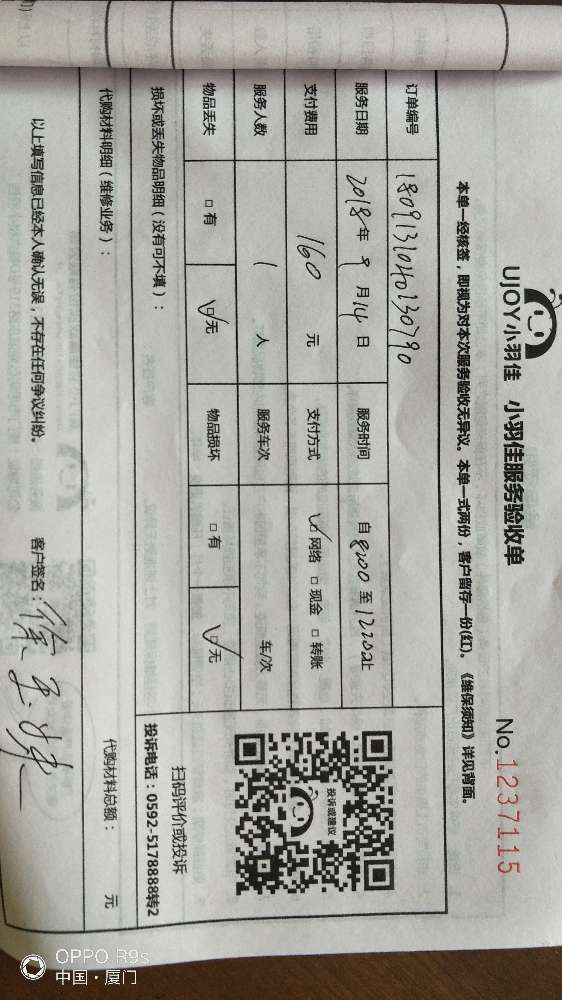 UJOY小羽佳 小羽佳服务验收单 No.1237115
本单一经核签，即视为对本次服务验收无异议。本单一式两份，客户留存一份(红)。《维保须知》详见背面。
订单编号 1809131040130790
服务日期 2018年 9月 14日 服务时间 自8:00至12:00止
支付费用 160 元 支付方式 网络 现金 转账
服务人数 1 人 服务车次 车/次
物品丢失 有 无 物品损坏 有 无
投诉或建议
扫码评价或投诉
投诉电话：0592-5178888转2
损坏或丢失物品明细（没有可不填）：
代购材料明细（维修业务）： 代购材料总额： 元
以上填写信息已经本人确认无误，不存在任何争议纠纷。 客户签名：
OPPO R9s
中国·厦门